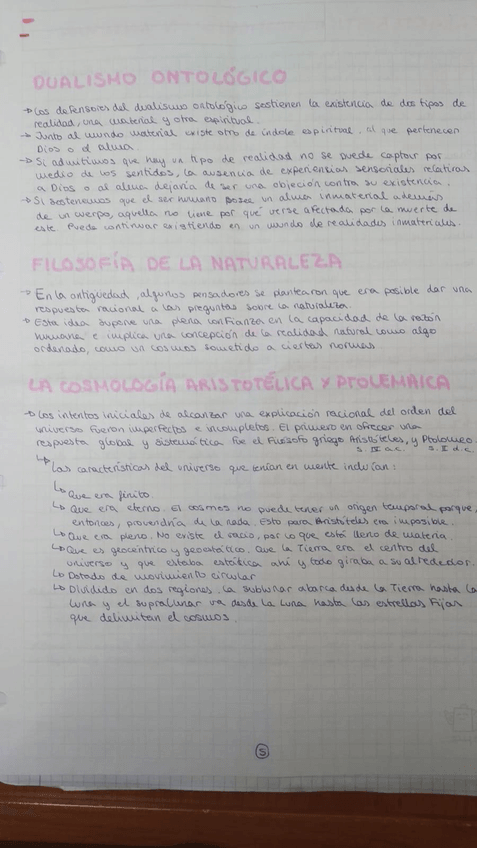 DUALISMO ONTOLÓGICO
→ Los defensores del dualismo ontológico sostienen la existencia de dos tipos de
realidad, una material y otra espiritual.
→ Junto al mundo material existe otro de índole espiritual, al que pertenecen
Dios o el alma.
→ Si admitimos que hay un tipo de realidad no se puede captar por
medio de los sentidos, la ausencia de experiencias sensoriales relativas
a Dios o al alma dejaría de ser una objeción contra su existencia.
→ Si sostenemos que el ser humano posee un alma inmaterial además
de un cuerpo, aquella no tiene por qué verse afectada por la muerte de
este. Puede continuar existiendo en un mundo de realidades inmateriales.
FILOSOFÍA DE LA NATURALEZA
→ En la antigüedad, algunos pensadores se plantearon que era posible dar una
respuesta racional a las preguntas sobre la naturaleza.
→ Esta idea supone una plena confianza en la capacidad de la razón
humana e implica una concepción de la realidad natural como algo
ordenado, como un cosmos sometido a ciertas normas.
LA COSMOLOGÍA ARISTOTÉLICA Y PTOLEMAICA
→ Los intentos iniciales de alcanzar una explicación racional del orden del
universo fueron imperfectos e incompletos. El primero en ofrecer una
respuesta global y sistemática fue el filósofo griego Aristóteles, y Ptolomeo.
S. IV a.c. S. II d.c.
↳ Las características del universo que tenían en mente incluían:
↳ Que era finito.
↳ Que era eterno. El cosmos no puede tener un origen temporal porque,
entonces, provendría de la nada. Esto para Aristóteles era imposible.
↳ Que era pleno. No existe el vacío, por lo que está lleno de materia.
↳ Que es geocéntrico y geoestático. Que la Tierra era el centro del
universo y que estaba estática ahí y todo giraba a su alrededor.
↳ Dotado de movimiento circular
↳ Dividido en dos regiones. La sublunar abarca desde la Tierra hasta la
Luna y el supralunar va desde la Luna hasta las estrellas fijas
que delimitan el cosmos.
5